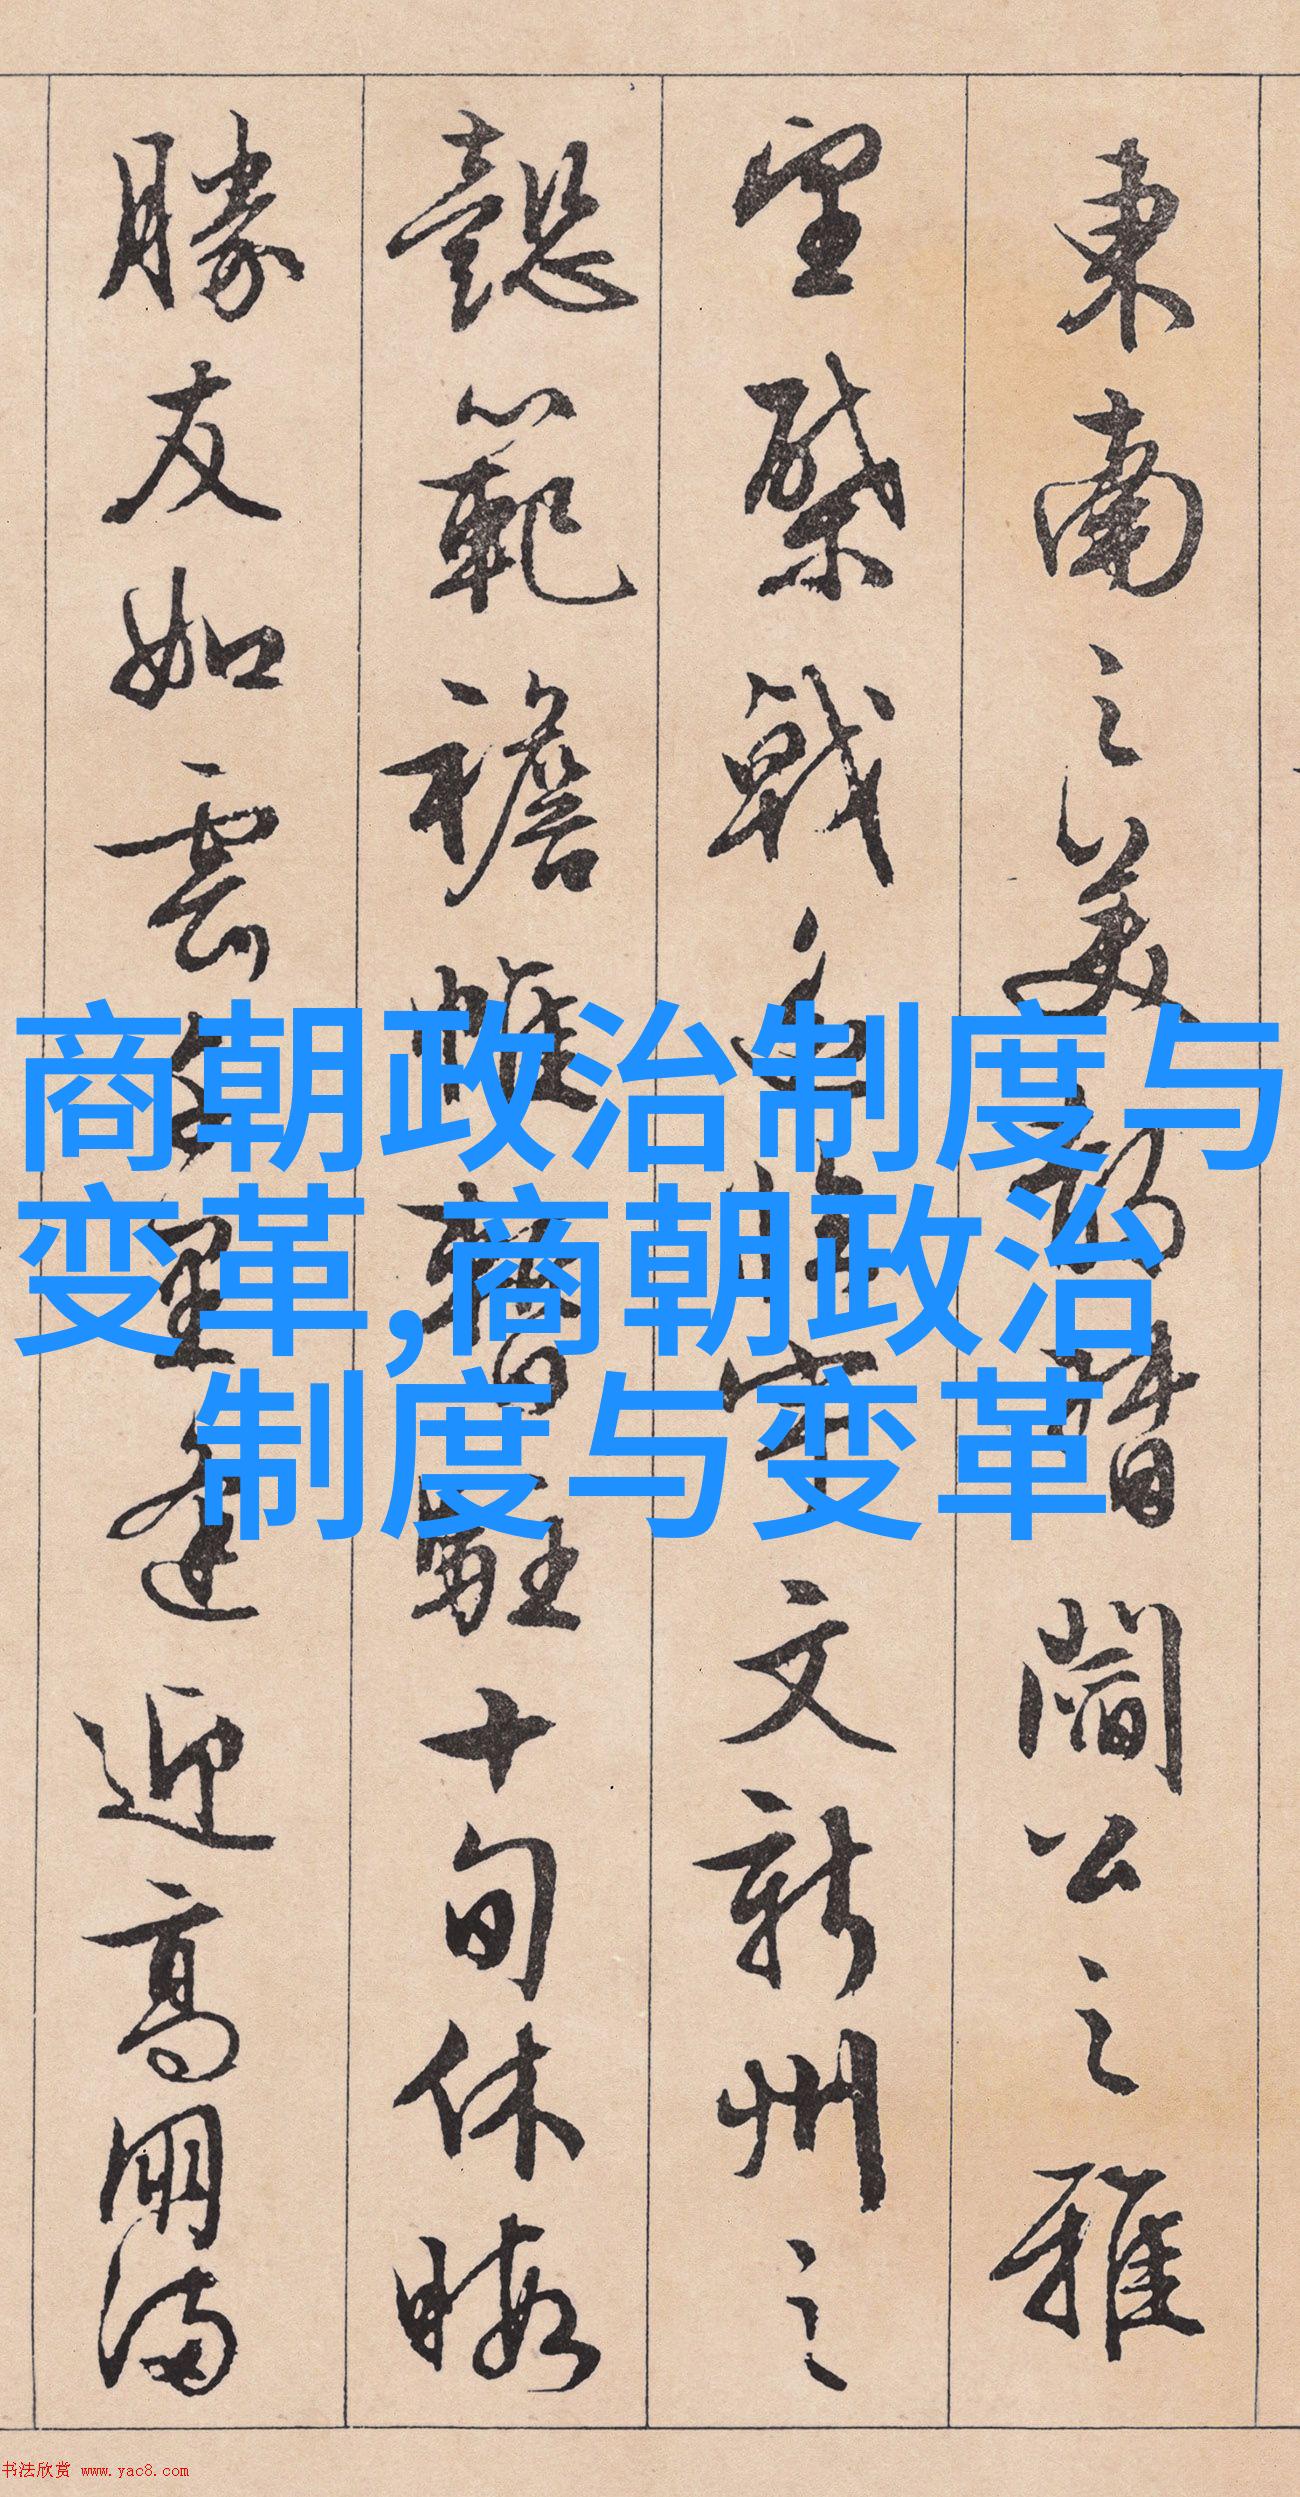 東南之美都督閻公之雅
望棨戟遙臨宇文新州之
懿範襜帷暫駐十旬休暇
勝友如雲千里逢迎高朋滿
商朝政治制度与
变革,商朝政治
制度与变革
书法欣赏 www.yac8.com